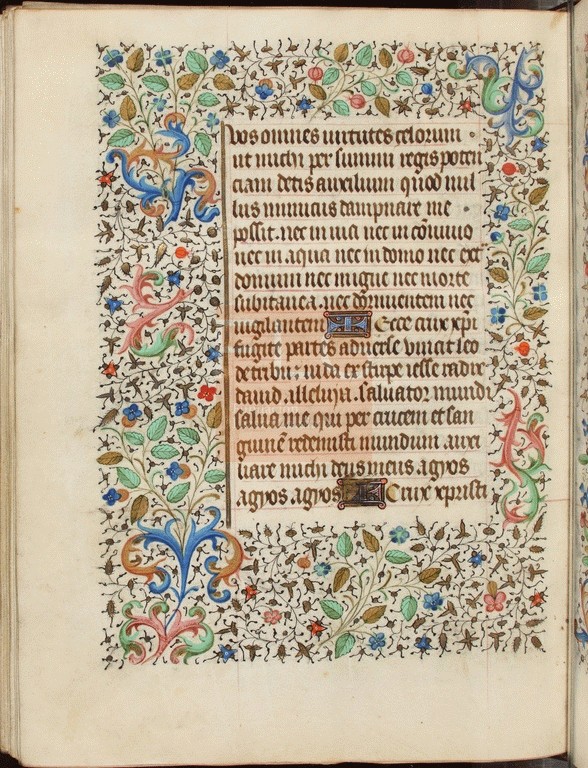 vos omnes virtutes celorum
ut michi per summi regis poten
ciam detis auxilium quod nul
lus inimicus dampnare me
possit. nec in via nec in cōvivio
nec in aqua nec in domo nec ext
dominu nec in igne nec morte
subitanea. nec dormientem nec
vigilantem Ecce crux xpi
fugite partes adverse vincit leo
de tribu iuda ex stirpe iesse radix
david. alleluya. salvator mundi
salva me qui per crucem et san
guinē redemisti mundum auxi
liare michi deus meus. agyos
agyos. agyos Crux xpristi